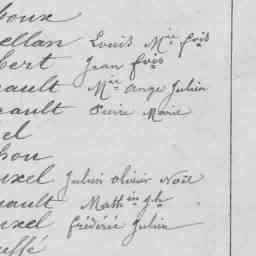 houx
ellan Louis Mie fois
bert Jean fois
ault Mie Ange Julien
ault Pierre Marie
el
hon
uxel Julien Olivier Noël
ault Mathin Jh
uxel Frédéric Julien
euffé